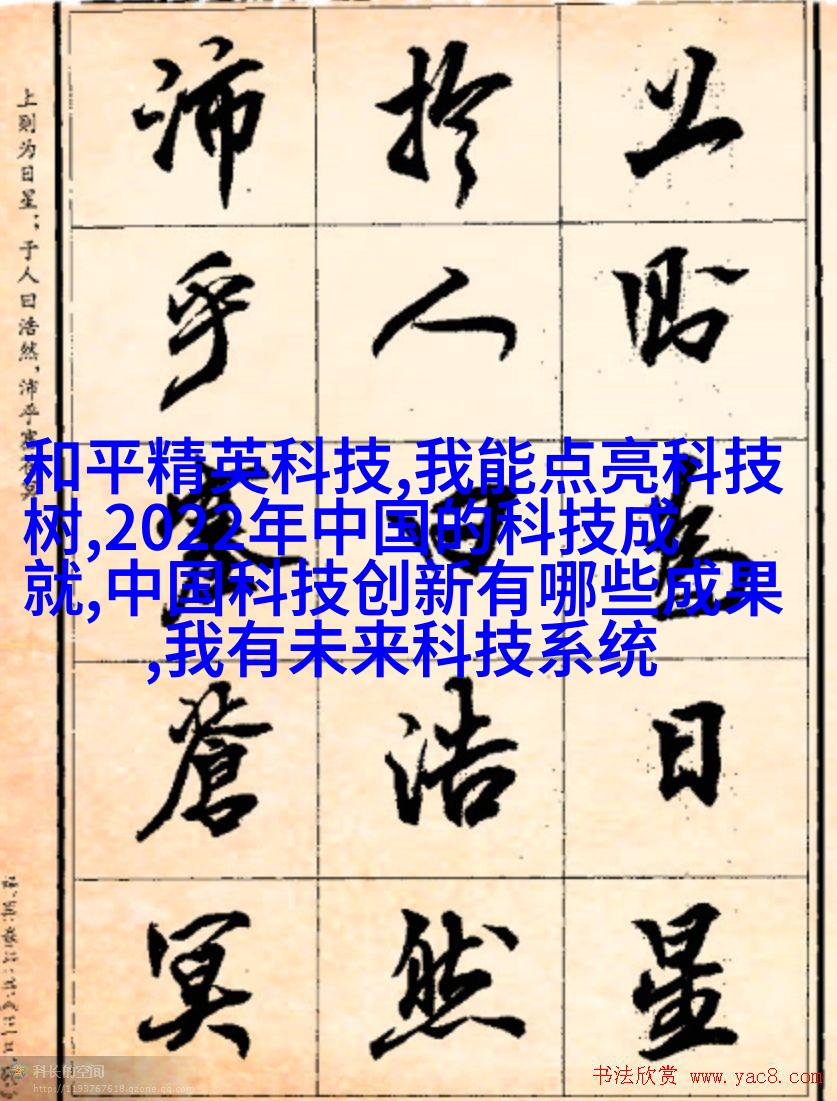 上则为日星；于人曰浩然，沛乎塞苍冥
上则为日星
於人曰浩然
沛乎塞苍冥
和平精英科技,我能点亮科技
树,2022年中国的科技成
就,中国科技创新有哪些成果
,我有未来科技系统
科长的空间
http://1193767618.qzone.qq.com
书法欣赏 www.yac8.com